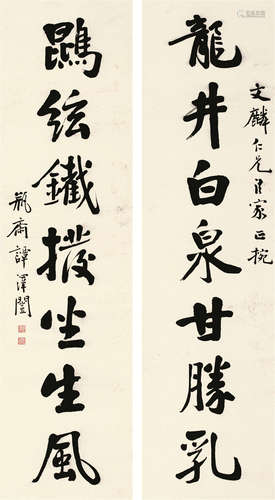 龍井白泉甘勝乳
文麟仁兄法家正捥
鵾絃鐵撥坐生風
瓶齋譚澤闓